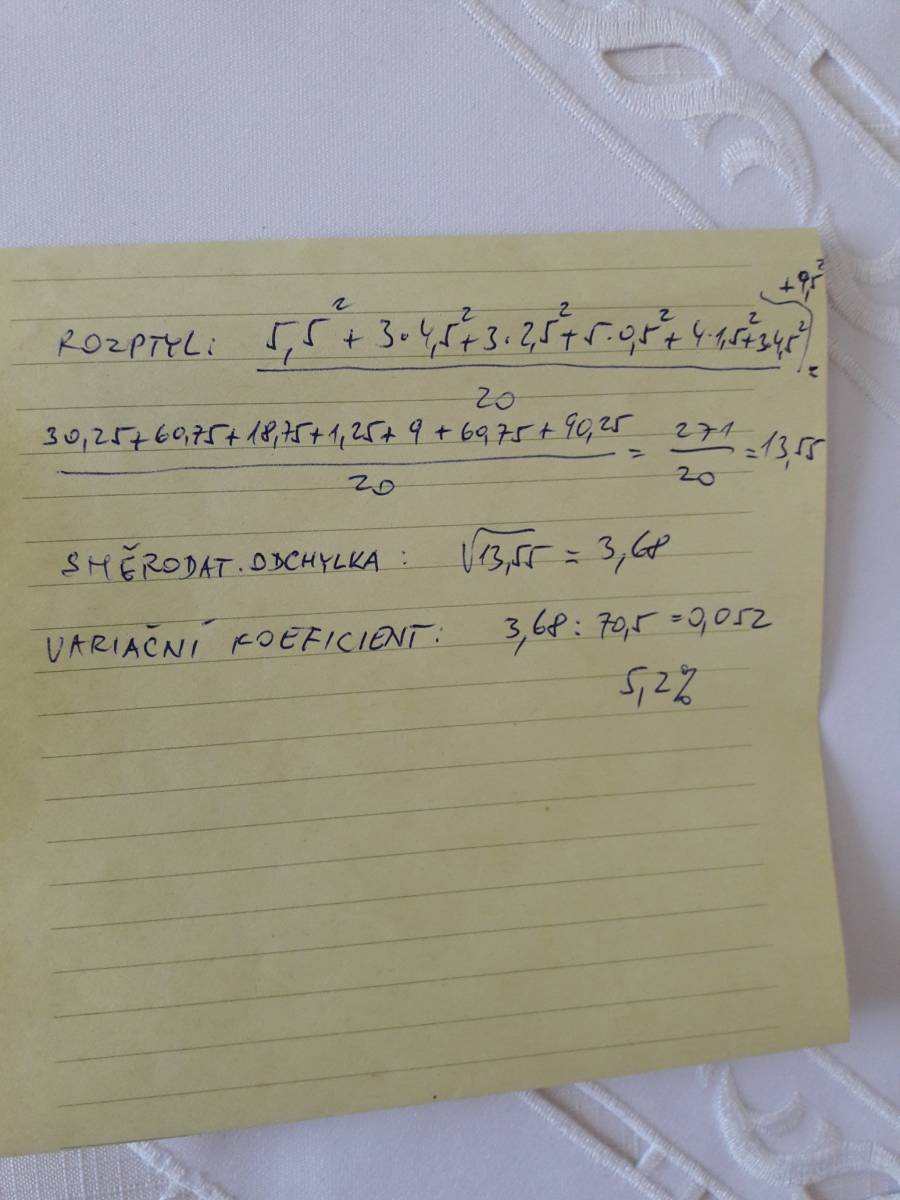 + 9,5²
ROZPTYL: 5,5² + 3·4,5² + 3·2,5² + 5·0,5² + 4·1,5² + 3·4,5² =
20
30,25 + 60,75 + 18,75 + 1,25 + 9 + 60,75 + 90,25 = 271 = 13,55
20 20
SMĚRODAT. ODCHYLKA: √13,55 = 3,68
VARIAČNÍ KOEFICIENT: 3,68 : 70,5 = 0,052
5,2%